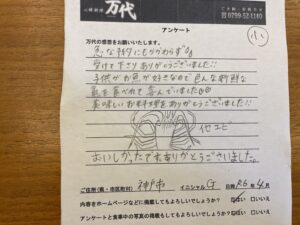 万代
ご予約・お問合せ
☎ 0799-52-1140
アンケート
万代の感想をお願いいたします。
急な予約にもかかわらず
受けて下さりありがとうございました!!
子供がお魚が好きなので色んな新鮮な
魚を食べれて喜んでいました
美味しいお料理をありがとうございました!!
おいしかったです。ありがとうございました。
ご住所(県・市区町村) 神戸市 イニシャル G 日時 R6年4月
内容をホームページなどに掲載してもよろしいでしょうか? はい □いいえ
アンケートと食事中の写真の掲載もしてもよろしいでしょうか? □はい □いいえ